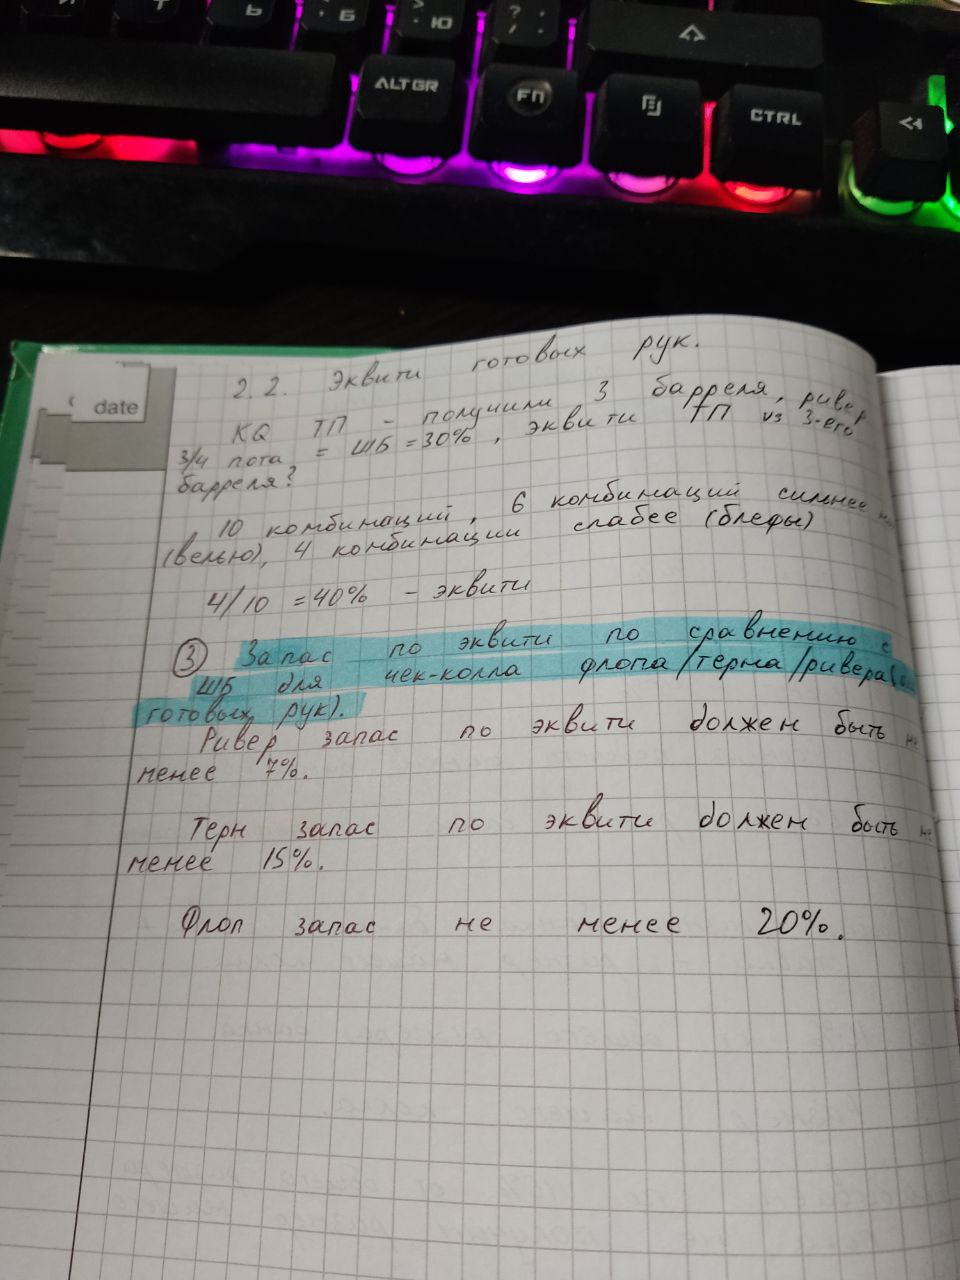 Б
Ю
? ,
; .
ALTGR
FN
CTRL
date
2.2. Эквити готовых рук.
KQ ТП - получили 3 барреля, ривер
3/4 пота = ШБ = 30%, эквити ТП vs 3-его
барреля?
10 комбинаций, 6 комбинаций сильнее
(велью), 4 комбинации слабее (блефы)
4/10 = 40% - эквити
③ Запас по эквити по сравнению с
ШБ для чек-колла флопа/терна/ривера
готовых рук).
Ривер запас по эквити должен быть не
менее 7%.
Терн запас по эквити должен быть не
менее 15%.
Флоп запас не менее 20%.